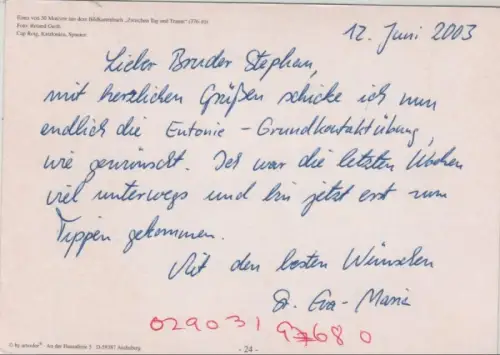 Eines von 30 Motiven aus dem Bildkartenbuch „Zwischen Tag und Traum“
Foto:
Cap Roig, Katalonien, Spanien
12. Juni 2003
Lieber Bruder Stephan,
mit herzlichen Grüßen schicke ich nun
endlich die Eutonie-Grundkontaktübung,
wie gewünscht. Ich war die letzten Wochen
viel unterwegs und bin jetzt erst zum
Tippen gekommen.
Mit den besten Wünschen
Sr. Eva-Maria
029031 97680
© by
- 24 -